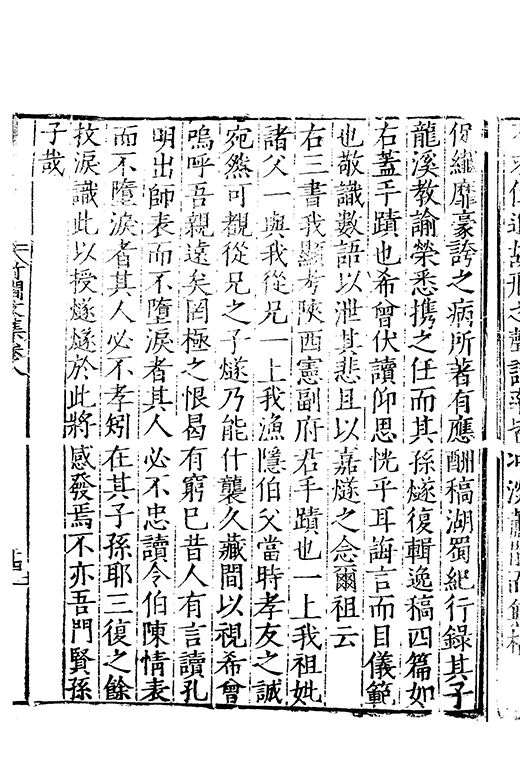 仁進
之
儷靡豪誇之病所著有應酬稿湖蜀紀行録其子
龍溪教諭榮悉携之任而其孫燧復輯逸稿四篇如
右蓋手蹟也希曾伏讀仰思恍乎耳誨言而目儀範
也敬識數語以泄其悲且以嘉燧之念爾祖云
右三書我顯考陝西憲副府君手蹟也一上我祖妣
諸父一與我從兄一上我漁隱伯父當時孝友之誠
宛然可觀從兄之子燧乃能什襲久藏間以視希曾
嗚呼吾親遠矣罔極之恨曷有窮已昔人有言讀孔
明出師表而不墮淚者其人必不忠讀令伯陳情表
而不墮淚者其人必不孝矧在其子孫耶三復之餘
抆淚識此以授燧燧於此將感發焉不亦吾門賢孫
子哉
竹澗文集卷八